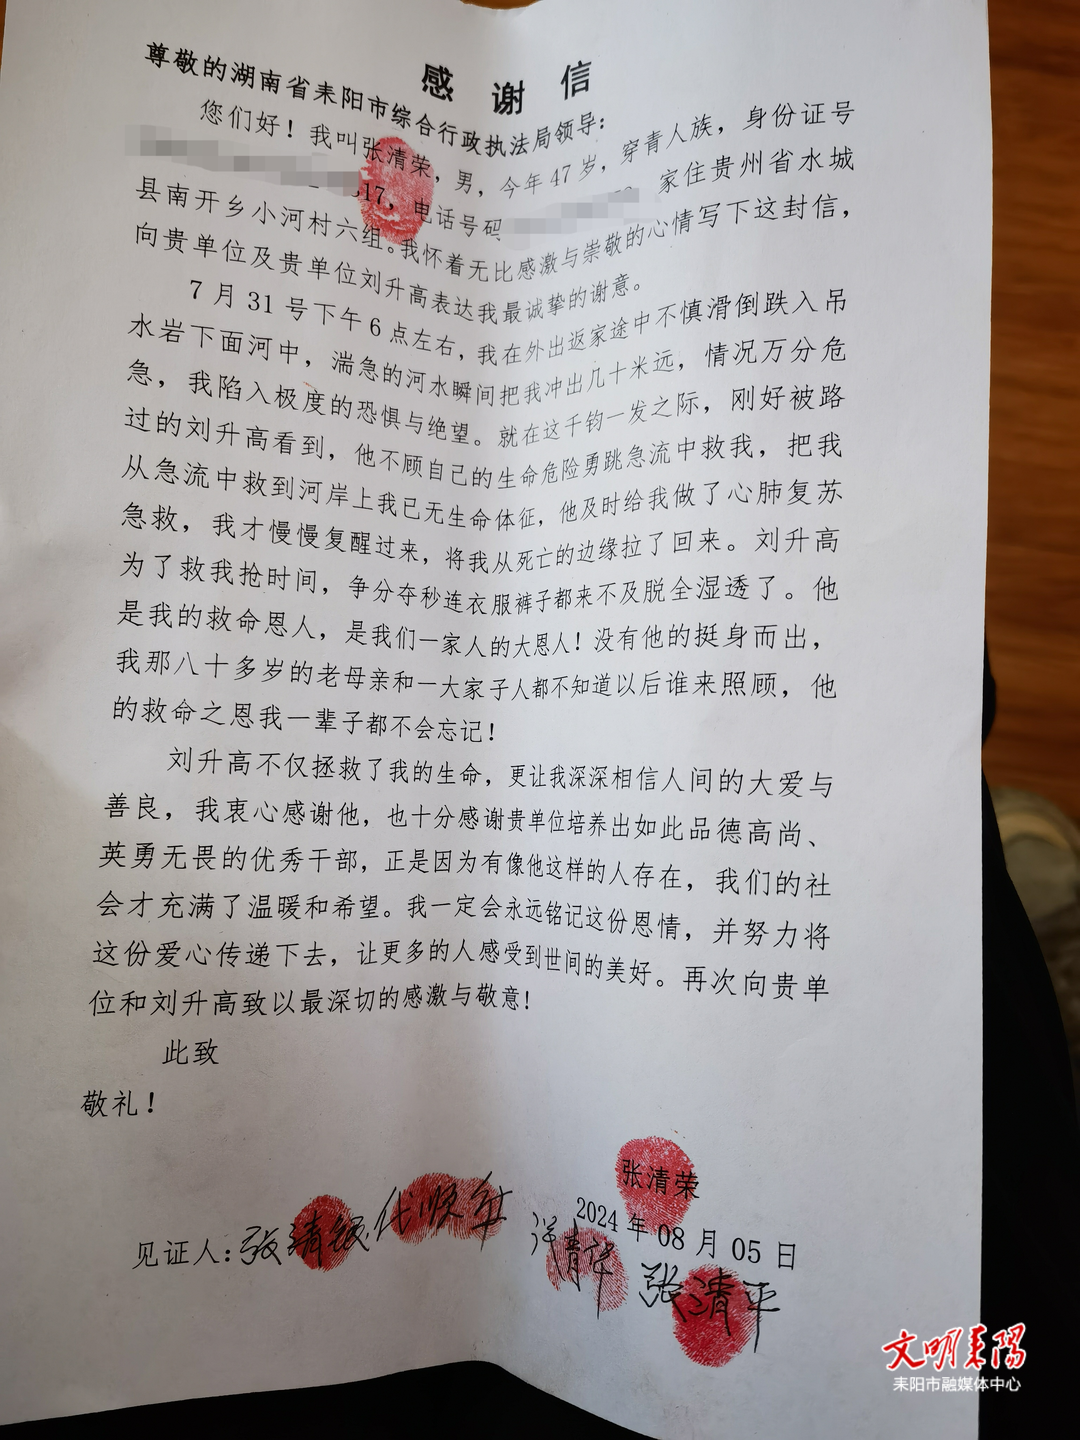 感谢信
尊敬的湖南省耒阳市综合行政执法局领导：
您们好！我叫张清荣，男，今年47岁，穿青人族，身份证号
17，电话号码 家住贵州省水城
县南开乡小河村六组。我怀着无比感激与崇敬的心情写下这封信，
向贵单位及贵单位刘升高表达我最诚挚的谢意。
7月31号下午6点左右，我在外出返家途中不慎滑倒跌入吊
水岩下面河中，湍急的河水瞬间把我冲出几十米远，情况万分危
急，我陷入极度的恐惧与绝望。就在这千钧一发之际，刚好被路
过的刘升高看到，他不顾自己的生命危险勇跳急流中救我，把我
从急流中救到河岸上我已无生命体征，他及时给我做了心肺复苏
急救，我才慢慢复醒过来，将我从死亡的边缘拉了回来。刘升高
为了救我抢时间，争分夺秒连衣服裤子都来不及脱全湿透了。他
是我的救命恩人，是我们一家人的大恩人！没有他的挺身而出，
我那八十多岁的老母亲和一大家子人都不知道以后谁来照顾，他
的救命之恩我一辈子都不会忘记！
刘升高不仅拯救了我的生命，更让我深深相信人间的大爱与
善良，我衷心感谢他，也十分感谢贵单位培养出如此品德高尚、
英勇无畏的优秀干部，正是因为有像他这样的人存在，我们的社
会才充满了温暖和希望。我一定会永远铭记这份恩情，并努力将
这份爱心传递下去，让更多的人感受到世间的美好。再次向贵单
位和刘升高致以最深切的感激与敬意！
此致
敬礼！
张清荣
2024年08月05日
见证人：张清银 张清华 张清平
文明耒阳
耒阳市融媒体中心